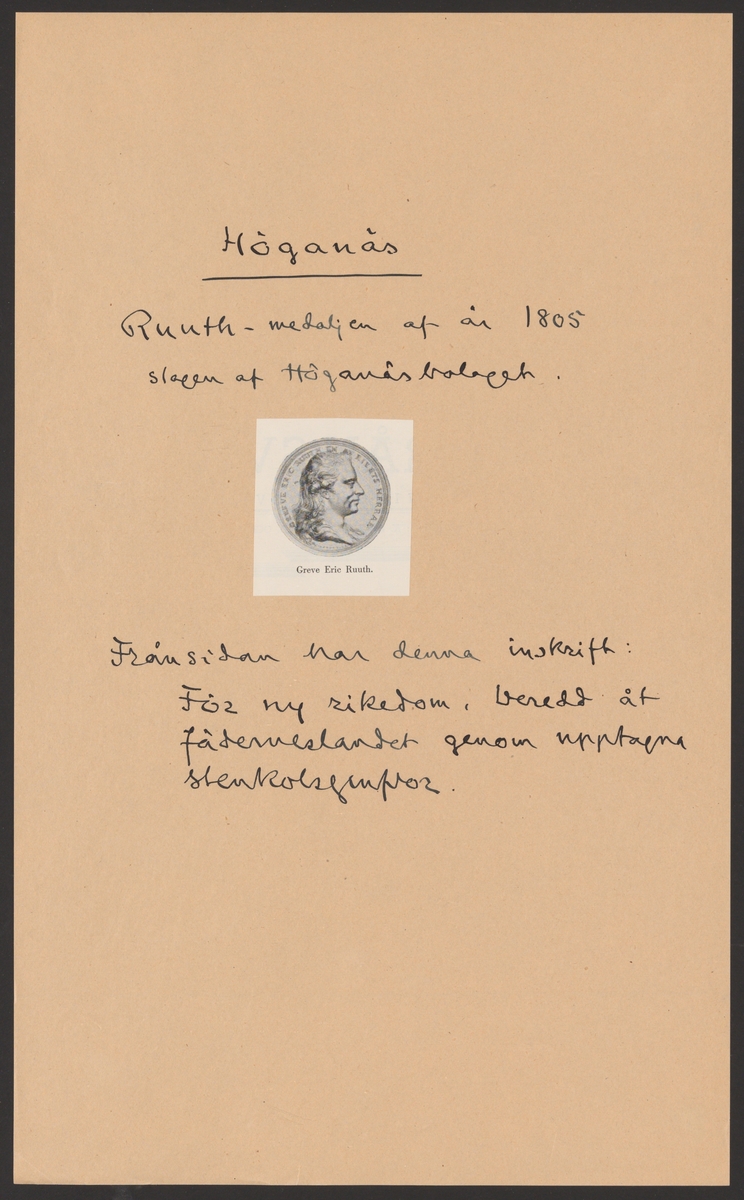 Höganäs
Ruuth-medaljen af år 1805
slagen af Höganäsbolaget.
GREFVE ERIC RUUTH EN AF RIKETS HERRAR
Greve Eric Ruuth.
Frånsidan har denna inskrift:
För ny rikedom, beredd åt
fäderneslandet genom upptagna
stenkolsgrufvor.